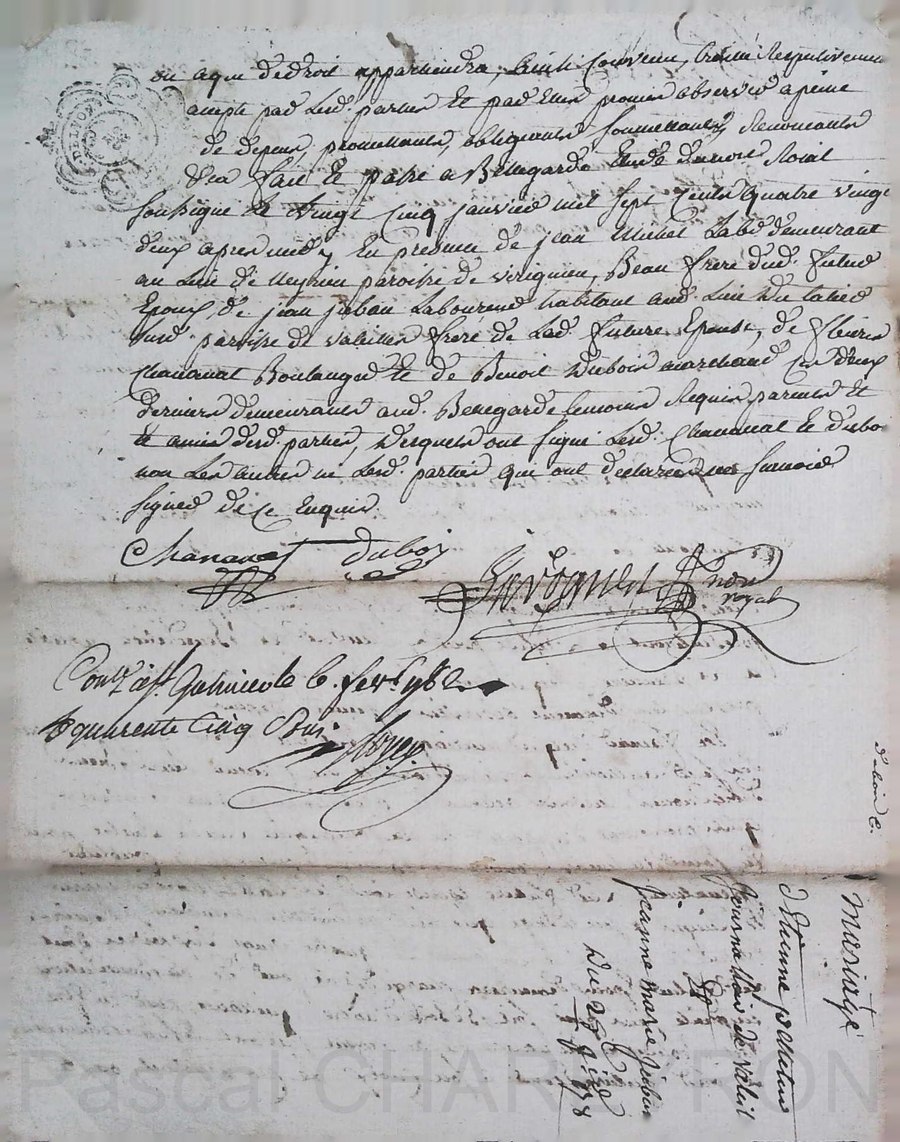 ou a qui de droit appartiendra, ainsi convenu, traité Respectivement
accepté par Lesd. parties et par Elles promis observer a peine
de depens, promettants, obligeants, soumettants, Renonceants
&ca fait et passé a Bellegarde Etude du no.re Roial
soussigné Le vingt cinq janvier mil sept cents quatre vingt
deux apres midy En presence de jean Michel Labbé demeurant
au Lieu de parroisse de virignieu, Beau frere dud. futur
Epoux, de jean Laboureur habitant aud. Lieu
susd. parroisse de valeilles frere de Lad. future Epouse, de fleury
Chananat Boulanger et de Benoit Dubois marchand Ces deux
derniers demeurants aud. Bellegarde temoins Requis parents et
et amis desd. parties, Desquels ont signé Lesd. Chananat et dubois
non Les autres ni Lesd. parties qui ont declaré ne sçavoir
signer de ce Enquis
Chananat dubois
no.re
royal
Con.lé a St Galmier le 6. fevr. 1782
R quarente cinq Sous
Mariage
D'Etienne
de valeil
&
jeanne marie
Du 25 1782